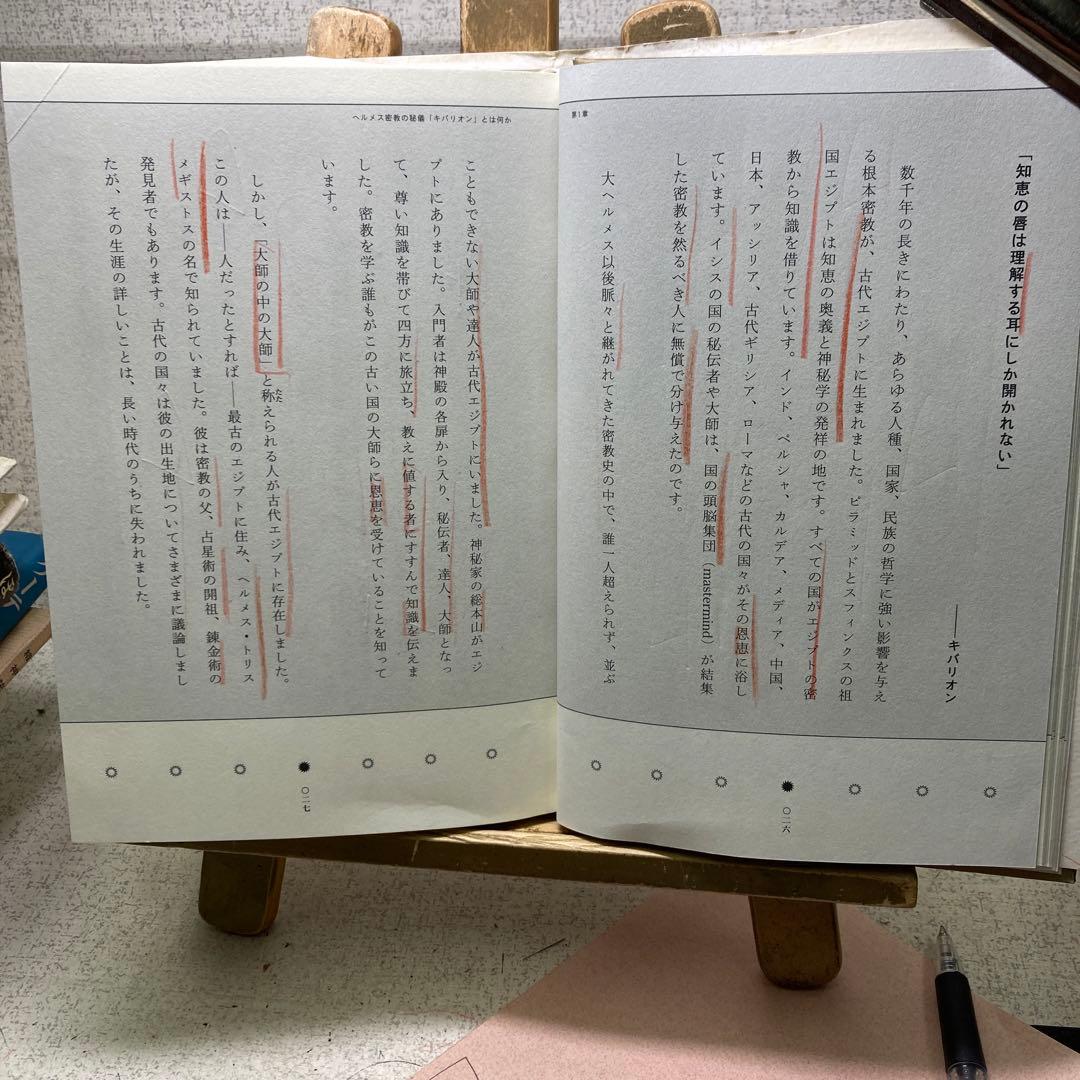 第1章
「知恵の唇は理解する耳にしか開かれない」
――キバリオン
数千年の長きにわたり、あらゆる人種、国家、民族の哲学に強い影響を与え
る根本密教が、古代エジプトに生まれました。ピラミッドとスフィンクスの祖
国エジプトは知恵の奥義と神秘学の発祥の地です。すべての国がエジプトの密
教から知識を借りています。インド、ペルシャ、カルデア、メディア、中国、
日本、アッシリア、古代ギリシア、ローマなどの古代の国々がその恩恵に浴し
ています。イシスの国の秘伝者や大師は、国の頭脳集団（mastermind）が結集
した密教を然るべき人に無償で分け与えたのです。
大ヘルメス以後脈々と継がれてきた密教史の中で、誰一人超えられず、並ぶ
〇二六
ヘルメス密教の秘儀「キバリオン」とは何か
こともできない大師や達人が古代エジプトにいました。神秘家の総本山がエジ
プトにありました。入門者は神殿の各扉から入り、秘伝者、達人、大師となっ
て、尊い知識を帯びて四方に旅立ち、教えに値する者にすすんで知識を伝えま
した。密教を学ぶ誰もがこの古い国の大師らに恩恵を受けていることを知って
います。
しかし、「大師の中の大師」と称えられる人が古代エジプトに存在しました。
たた
この人は――人だったとすれば――最古のエジプトに住み、ヘルメス・トリス
メギストスの名で知られていました。彼は密教の父、占星術の開祖、錬金術の
発見者でもあります。古代の国々は彼の出生地についてさまざまに議論しまし
たが、その生涯の詳しいことは、長い時代のうちに失われました。
〇二七